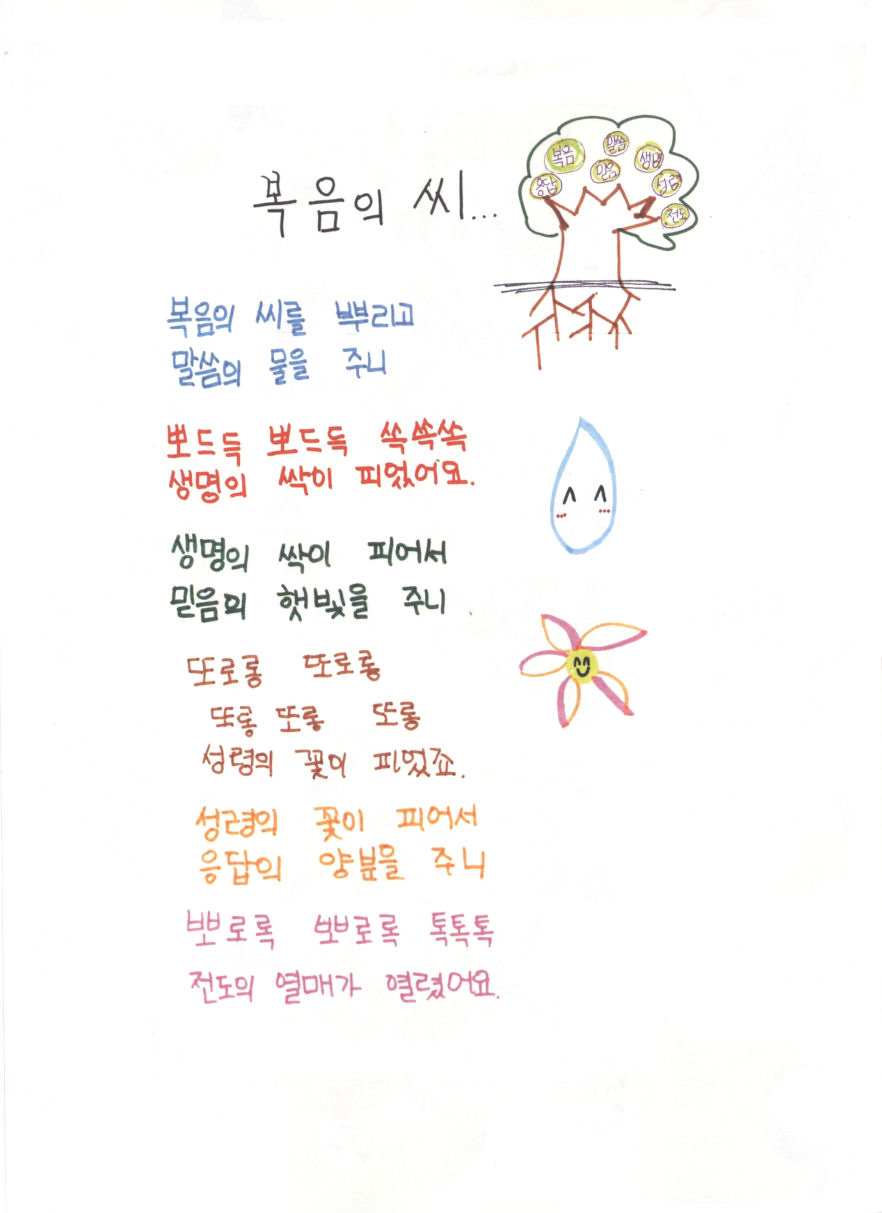 복음의 씨...
복음
말씀
생명
응답
믿음
성령
전도
복음의 씨를 뿌리고
말씀의 물을 주니
뽀드득 뽀드득 쏙쏙쏙
생명의 싹이 피었어요.
생명의 싹이 피어서
믿음의 햇빛을 주니
또로롱 또로롱
또롱 또롱 또롱
성령의 꽃이 피었죠.
성령의 꽃이 피어서
응답의 양분을 주니
뽀로록 뽀로록 톡톡톡
전도의 열매가 열렸어요.